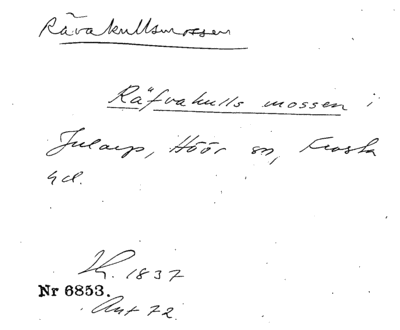 Rävakullsmossen
Räfvakulls mossen i
Jularp, Höör sn, Frosta
hd.
1837
Nr 6853.
Ant 72.